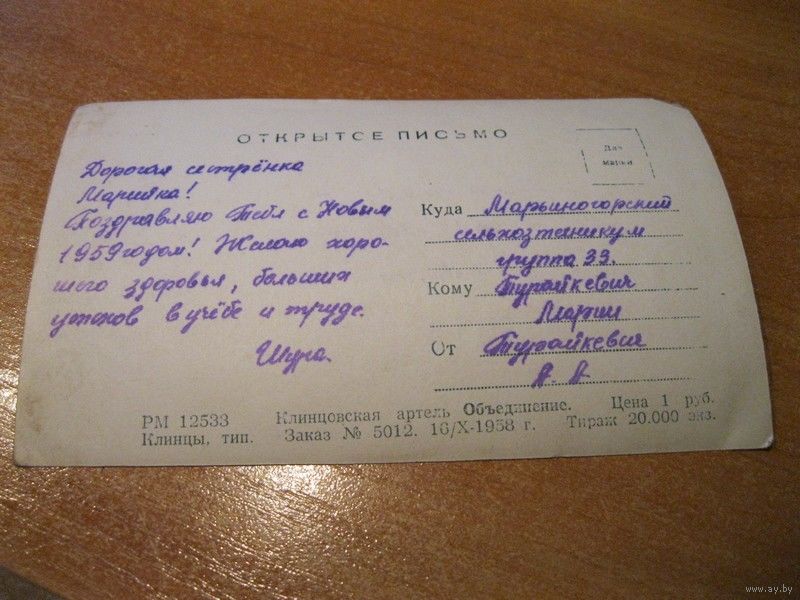 ОТКРЫТОЕ ПИСЬМО
Для
марки
Дорогая сестрёнка
Марийка!
Поздравляю Тебя с Новым
1959 годом! Желаю хоро-
шего здоровья, больших
успехов в учёбе и труде.
Шура.
Куда Марьиногорский
сельхозтехникум
группа 33.
Кому Турайкевич
Марии
От Турайкевич
А. А
РМ 12533 Клинцовская артель Объединение. Цена 1 руб.
Клинцы, тип. Заказ № 5012. 16/X-1958 г. Тираж 20.000 экз.
www.ay.by